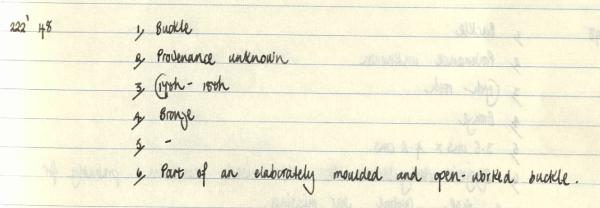 222' 48 1, Buckle
2, Provenance unknown
3, (17th - 18th
4, Bronze
5, -
6, Part of an elaborately moulded and open-worked buckle.